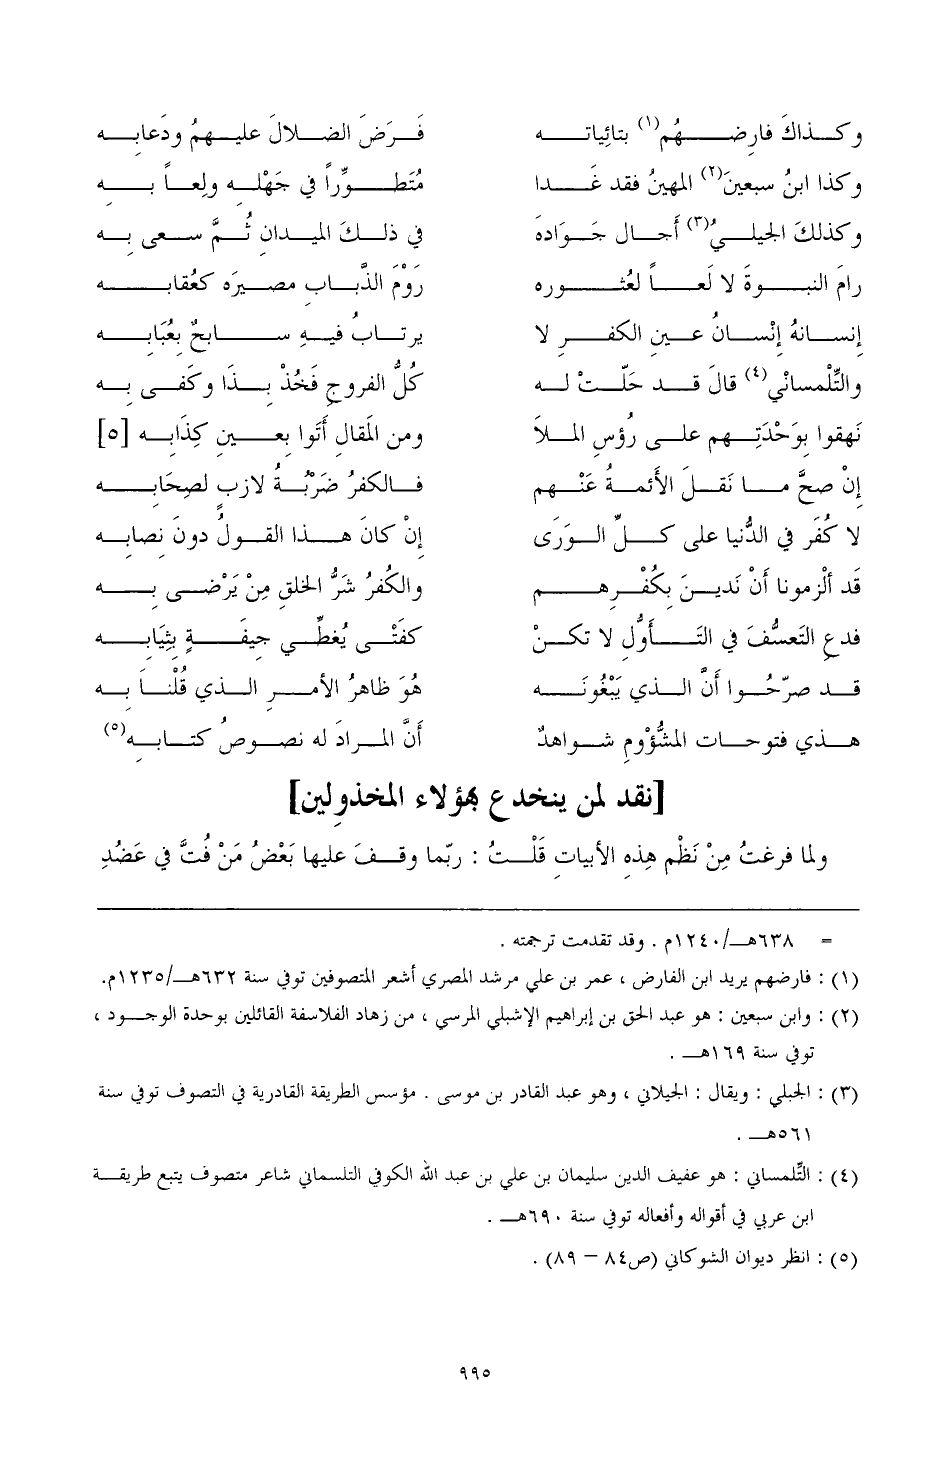 وكذاكَ فارِضُهُم(١) بتائِياته فَرَضَ الضلالَ عليهمُ ودَعابه
وكذا ابنُ سبعينَ(٢) المهينُ فقد غَدا مُتَطوِّراً في جَهْله ولِعاً به
وكذلكَ الجيليُّ(٣) أجال جَوَادَهُ في ذلكَ الميدانِ ثُمَّ سعى به
رامَ النبوةَ لا لَعاً لعُثوره رَوْمَ الذُّبابِ مصيرَه كعُقابه
إنسانهُ إنْسانُ عينِ الكفرِ لا يرتابُ فيهِ سابحٌ بعُبَابه
والتِّلْمساني(٤) قالَ قد حَلّت له كلُّ الفروجِ فخُذْ بذا وكَفى به
نَهقوا بوَحْدَتِهم على رؤسِ الملأ ومن المَقالِ أتَوا بعينِ كِذَابه [٥]
إنْ صحَّ ما نَقلَ الأئمةُ عَنْهم فالكفرُ ضَرْبةُ لازبٍ لصِحَابه
لا كُفرَ في الدُّنيا على كلِّ الورَى إنْ كانَ هذا القولُ دونَ نصابه
قد ألْزمونا أنْ نَدينَ بكُفْرِهم والكُفرُ شرُّ الخلقِ مِنْ يَرْضى به
فدعِ التَعسُّفَ في التَأوُّلِ لا تكنْ كفَتْى يُغطِّي جيفةٍ بِثيَابه
قد صرّحُوا أنَّ الذي يَبْغُونَه هوَ ظاهرُ الأمرِ الذي قُلْنَا به
هذي فتوحات المَشؤومِ شواهدٌ أنَّ المرادَ له نصوصُ كتابه(٥)
[نقد لمن ينخدع بهؤلاء المخذولين]
ولما فرغتُ مِنْ نَظْمِ هذِه الأبياتِ قلْتُ : ربّما وقفَ عليها بَعْضُ مَنْ فُتَّ في عَضُدِ
= ٦٣٨هـ/١٢٤٠م . وقد تقدمت ترجمته .
(١) : فارضهم يريد ابن الفارض ، عمر بن علي مرشد المصري أشعر المتصوفين توفي سنة ٦٣٢هـ/١٢٣٥م.
(٢) : وابن سبعين : هو عبد الحق بن إبراهيم الإشبلي المرسي ، من زهاد الفلاسفة القائلين بوحدة الوجود ،
توفي سنة ١٦٩هـ .
(٣) : الجبلي : ويقال : الجيلاني ، وهو عبد القادر بن موسى . مؤسس الطريقة القادرية في التصوف توفي سنة
٥٦١هـ .
(٤) : التِّلمساني : هو عفيف الدين سليمان بن علي بن عبد الله الكوفي التلسماني شاعر متصوف يتبع طريقة
ابن عربي في أقواله وأفعاله توفي سنة ٦٩٠هـ .
(٥) : انظر ديوان الشوكاني (ص٨٤ – ٨٩) .
٩٩٥